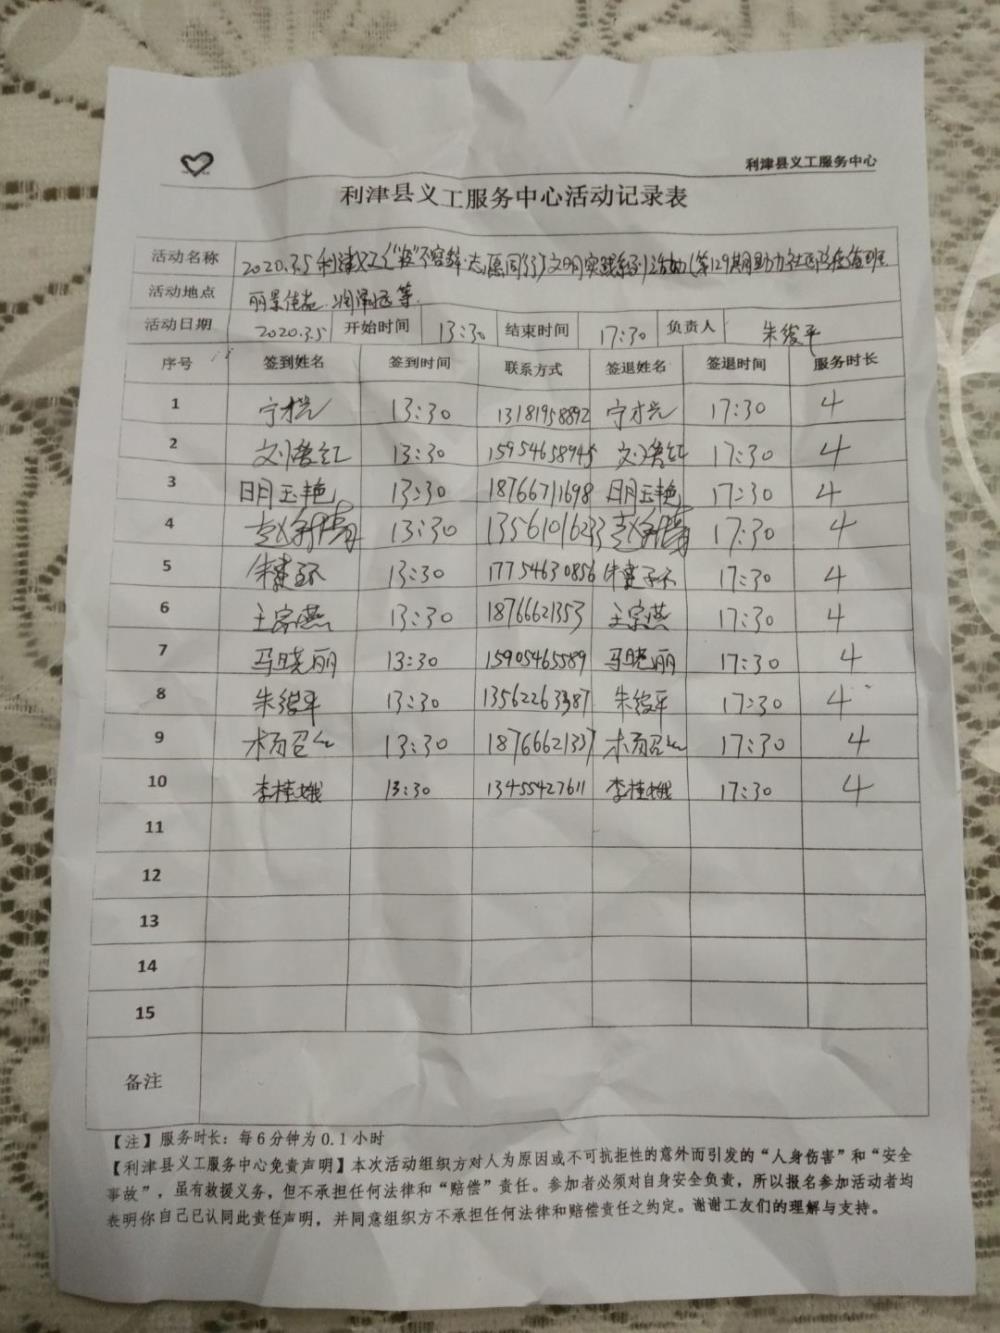 利津县义工服务中心
利津县义工服务中心活动记录表
活动名称 2020.3.5利津义工("疫"不容辞·志愿同行)文明实践系列活动(第129期助力社区防疫值班
活动地点 丽景佳苑、润泽园等
活动日期 2020.3.5 开始时间 13:30 结束时间 17:30 负责人 朱俊平
序号 签到姓名 签到时间 联系方式 签退姓名 签退时间 服务时长
1 13:30 13181958892 17:30 4
2 13:30 15954658945 17:30 4
3 明玉艳 13:30 18766711698 明玉艳 17:30 4
4 13:30 13561016233 17:30 4
5 13:30 17754630856 17:30 4
6 王宗燕 13:30 18766621353 王宗燕 17:30 4
7 马晓丽 13:30 15905465589 马晓丽 17:30 4
8 朱俊平 13:30 13562263387 朱俊平 17:30 4
9 13:30 18766621337 17:30 4
10 李桂娥 13:30 13455427611 李桂娥 17:30 4
11
12
13
14
15
备注
【注】服务时长：每6分钟为0.1小时
【利津县义工服务中心免责声明】本次活动组织方对人为原因或不可抗拒性的意外而引发的“人身伤害”和“安全
事故”，虽有救援义务，但不承担任何法律和“赔偿”责任。参加者必须对自身安全负责，所以报名参加活动者均
表明你自己已认同此责任声明，并同意组织方不承担任何法律和赔偿责任之约定。谢谢工友们的理解与支持。